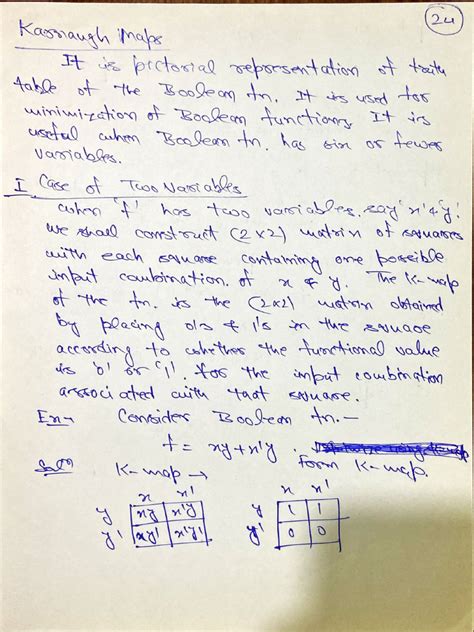 24
Karnaugh Maps
It is pictorial representation of truth
table of the Boolean fn. It is used for
minimization of Boolean functions. It is
useful when Boolean fn. has six or fewer
variables.
I Case of Two Variables
when 'f' has two variables, say 'x' & 'y'.
we shall construct (2x2) matrix of squares
with each square containing one possible
input combination of x & y. The K-map
of the fn. is the (2x2) matrix obtained
by placing 0's & 1's in the square
according to whether the functional value
is '0' or '1'. for the input combination
associated with that square.
Ex→ Consider Boolean fn.—
f = xy + x'y.
form K-map.
Sol K-map →
x x' x x'
y xy x'y y 1 1
y' xy' x'y' y' 0 0